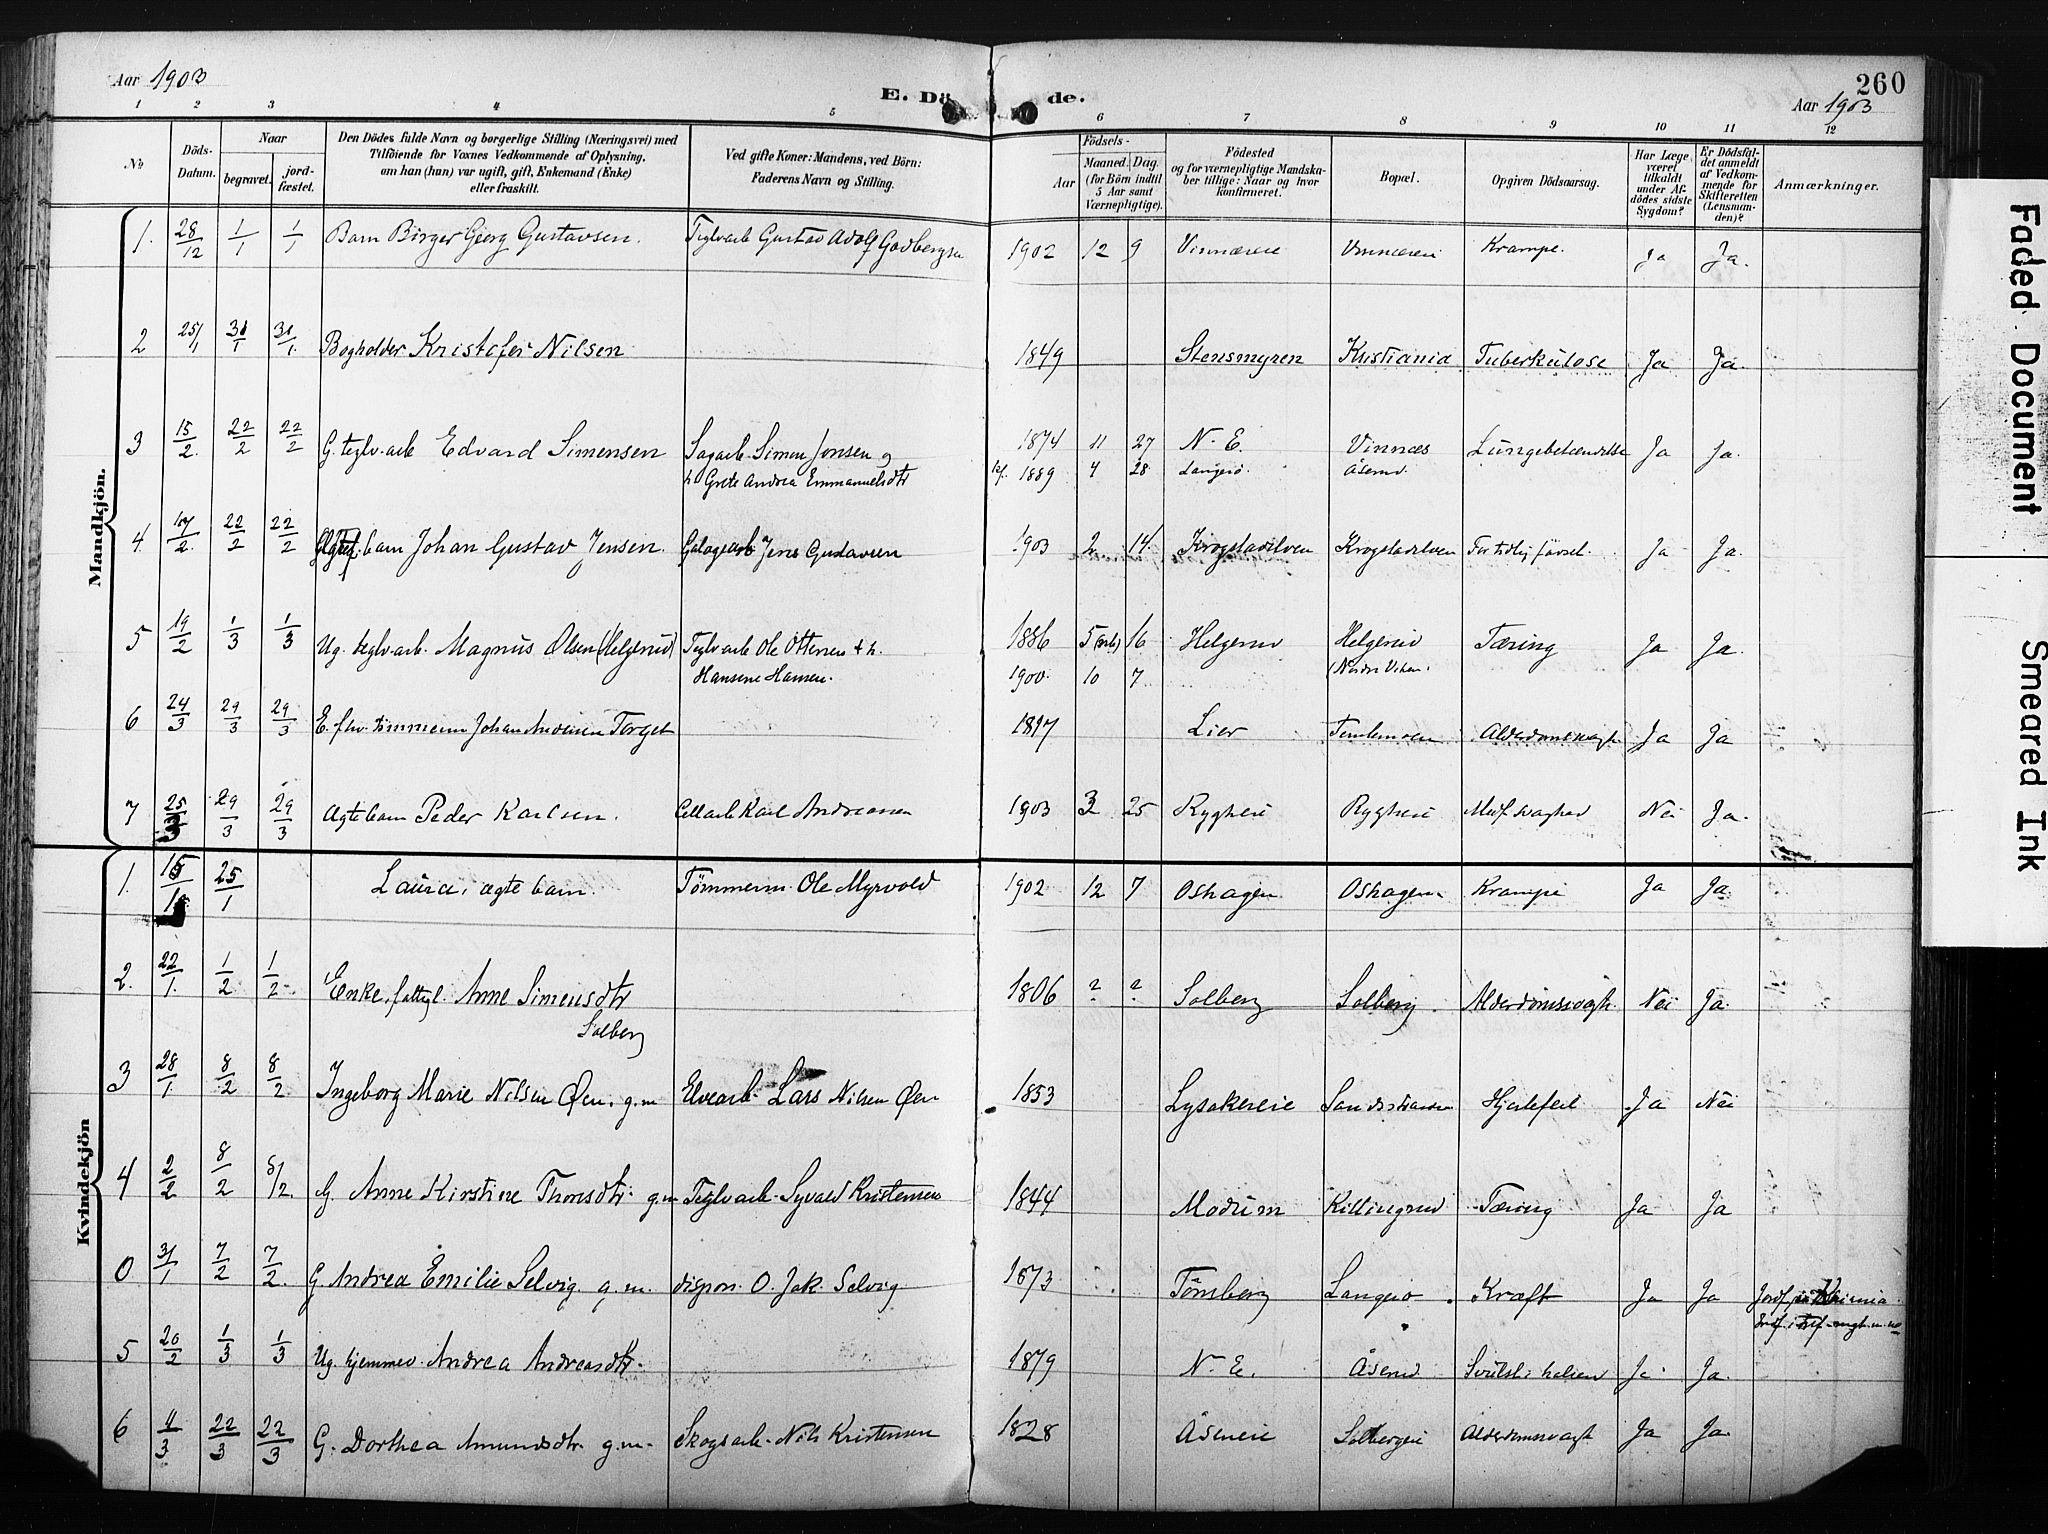 Aar 1903
E. Dö de.
260
Aar 1903
1 2 3 4 5 6 7 8 9 10 11 12
No
Döds-Datum.
Naar
begravet.
jord-fæstet.
Den Dödes fulde Navn og borgerlige Stilling (Næringsvei) med
Tilföiende for Voxnes Vedkommende af Oplysning,
om han (hun) var ugift, gift, Enkemand (Enke)
eller fraskilt.
Ved gifte Koner: Mandens, ved Börn:
Faderens Navn og Stilling.
Födsels-
Aar
Maaned. Dag.
(for Börn indtil
5 Aar samt
Værnepligtige).
Födested
og for værnepligtige Mandska-
ber tillige: Naar og hvor
konfirmeret.
Bopæl.
Opgiven Dödsaarsag.
Har Læge
været
tilkaldt
under Af-
dödes sidste
Sygdom?
Er Dödsfal-
det anmeldt
af Vedkom-
mende for
Skifteretten
(Lensman-
den)?
Anmærkninger.
Mandkjön.
1. 28/12 1/1 1/1 Barn Birger Georg Gustavsen. Teglvarb Gustav Adolf 1902 12 9 Vinnæreie Vinnæreie Krampe. Ja Ja.
2 25/1 31/1 31/1 Bogholder Kristofer Nilsen 1849 Stensmyren Kristiania Tuberkulose Ja Ja.
3 15/2 22/2 22/2 G. teglv. arb Edvard Simensen Sagarb. Simen Jonsen og 1874 11 27 N. E. Vinnæs Lungebetændelse Ja Ja.
h Grete Andrea Emmanuelsdtr kf. 1889 4 28 Langerø Åserud.
4. 17/2 22/2 22/2 barn Johan Gustav Jensen. Jens Gustavsen 1903 2 14. Krogstadelven Krogstadelven For tidlig førsel. Ja Ja.
5 19/2 1/3 1/3 Ug. teglv. arb. Magnus Olsen (Helgerud) Teglv arb Ole Ottersen + h. 1886 5 16 Helgerud Helgerud Tæring Ja Ja.
Hansene Hansen. 1900 10 7
6 24/3 29/3 29/3 E. fhv. tømmerm Johan Andersen Torget 1817 Lier Alderdomssvagh Ja Ja
7 25 29/3 29/3 Ægte barn Peder Karlsen. Cellarb Karl Andreassen 1903 3 25 Rygheie Rygheie Medf. svaghed Nei Ja.
Kvindekjön
1. 15/1 25/1 Laura, ægte barn. Tømmerm. Ole Myrvold 1902 12 7 Oshagen Oshagen Krampe Ja Ja.
2. 22/1. 1/2 1/2 Enke, fattigl. Anne Simensdtr 1806 ? ? Solberg Solberg. Alderdomssvagh. Nei Ja.
Solberg
3 28/1. 8/2 8/2. Ingeborg Marie Nilsen Øen, g.m Elvearb. Lars Nilsen Øen 1853 Lysakereie Hjertefeil Ja Nei
4 2/2 8/2 8/2. G. Anne Kirstine Thorsdtr g.m Teglv arb. Syvald Kristensen 1844 Modum Killingrud Tæring Ja Ja
0 31/1 7/2 7/2. G. Andrea Emilie Selvig. g.m. dispon. O. Jak. Selvig 1873 Tønsberg Langerø. Kræft Ja Ja
5 20/2 1/3 1/3 Ug. hjemmev. Andrea Andreasdtr. 1879 N. E. Åserud Svulst i halsen Ja Ja.
6 4/3 22/3 22/3 G. Dorthea Amundsdtr. g.m. Skogsarb. Nils Kristensen 1828 Åsereie Solbergeie Alderdomssvagh Ja Ja.
Faded Document
Smeared Ink